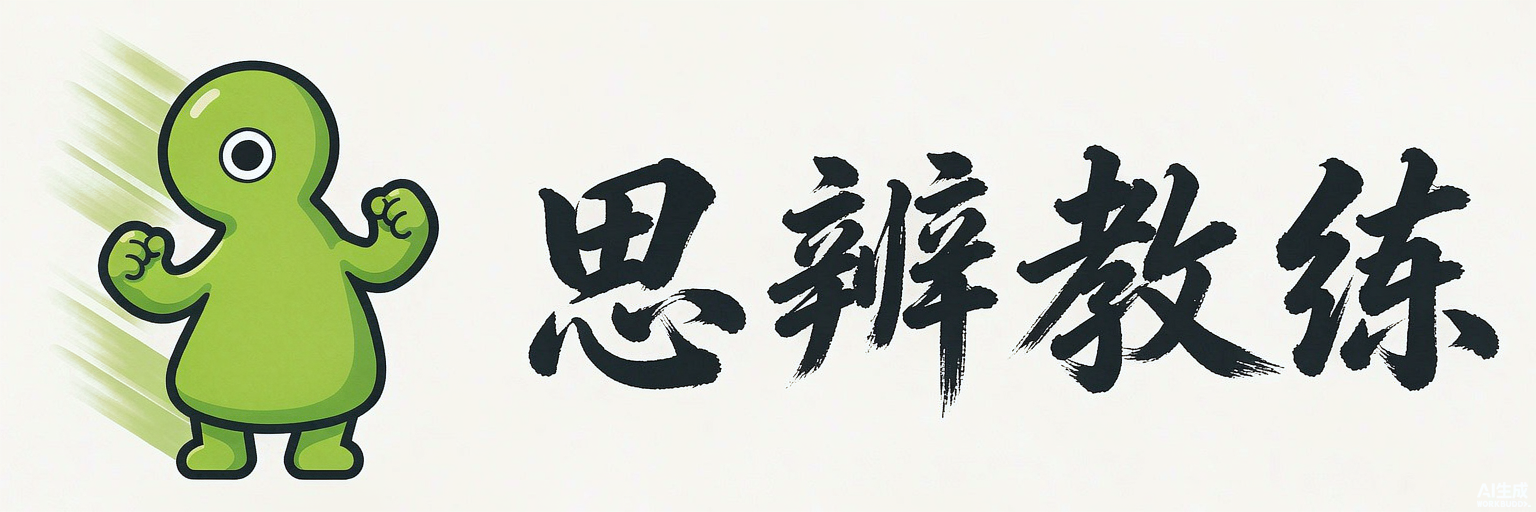 思辨教练
AI生成